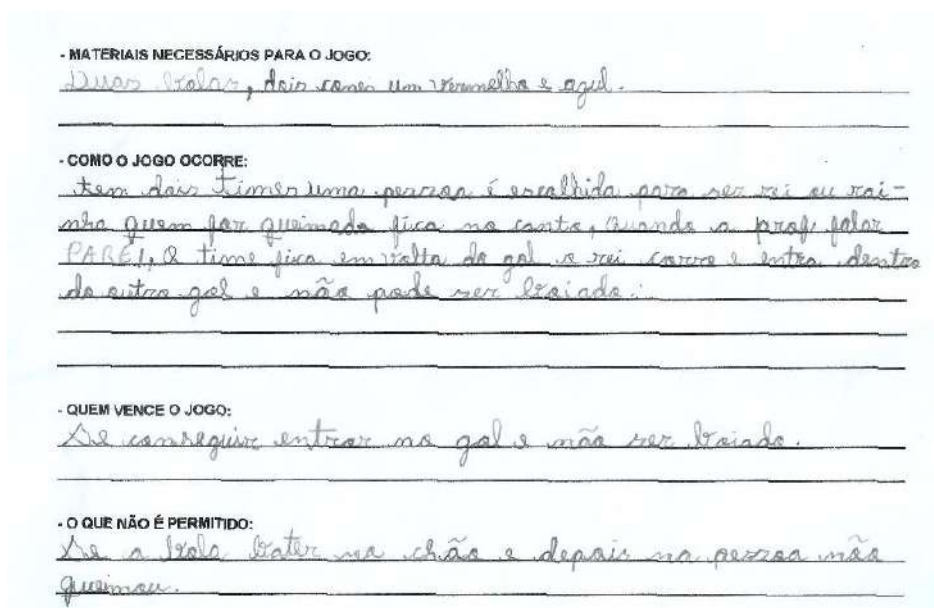 - MATERIAIS NECESSÁRIOS PARA O JOGO:
Duas bolas, dois cones um vermelho e azul.
- COMO O JOGO OCORRE:
tem dois times uma pessoa é escolhida para ser rei ou rai-
nha quem for queimado fica no canto, quando a prof. falar
PAREI, O time fica em volta do gol o rei corre e entra dentro
do outro gol e não pode ser boiado.
- QUEM VENCE O JOGO:
Se conseguir entrar no gol e não ser boiado.
- O QUE NÃO É PERMITIDO:
Se a bola bater no chão e depois na pessoa não
queimou.